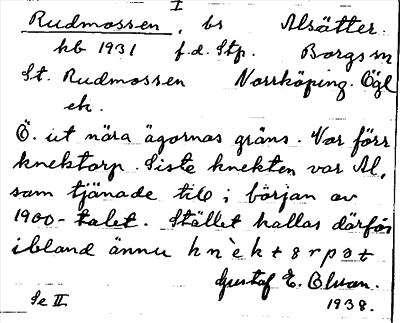 I
Rudmossen, bs Alsätter.
hb 1931 f.d. Stp. Borgs sn
St. Rudmossen Norrköping. Ögl
ek.
Ö. ut nära ägornas gräns. Var förr
knektorp. Siste knekten var Al,
som tjänade till i början av
1900-talet. Stället kallas därför
ibland ännu
Gustaf E. Olsson.
Se II. 1938.